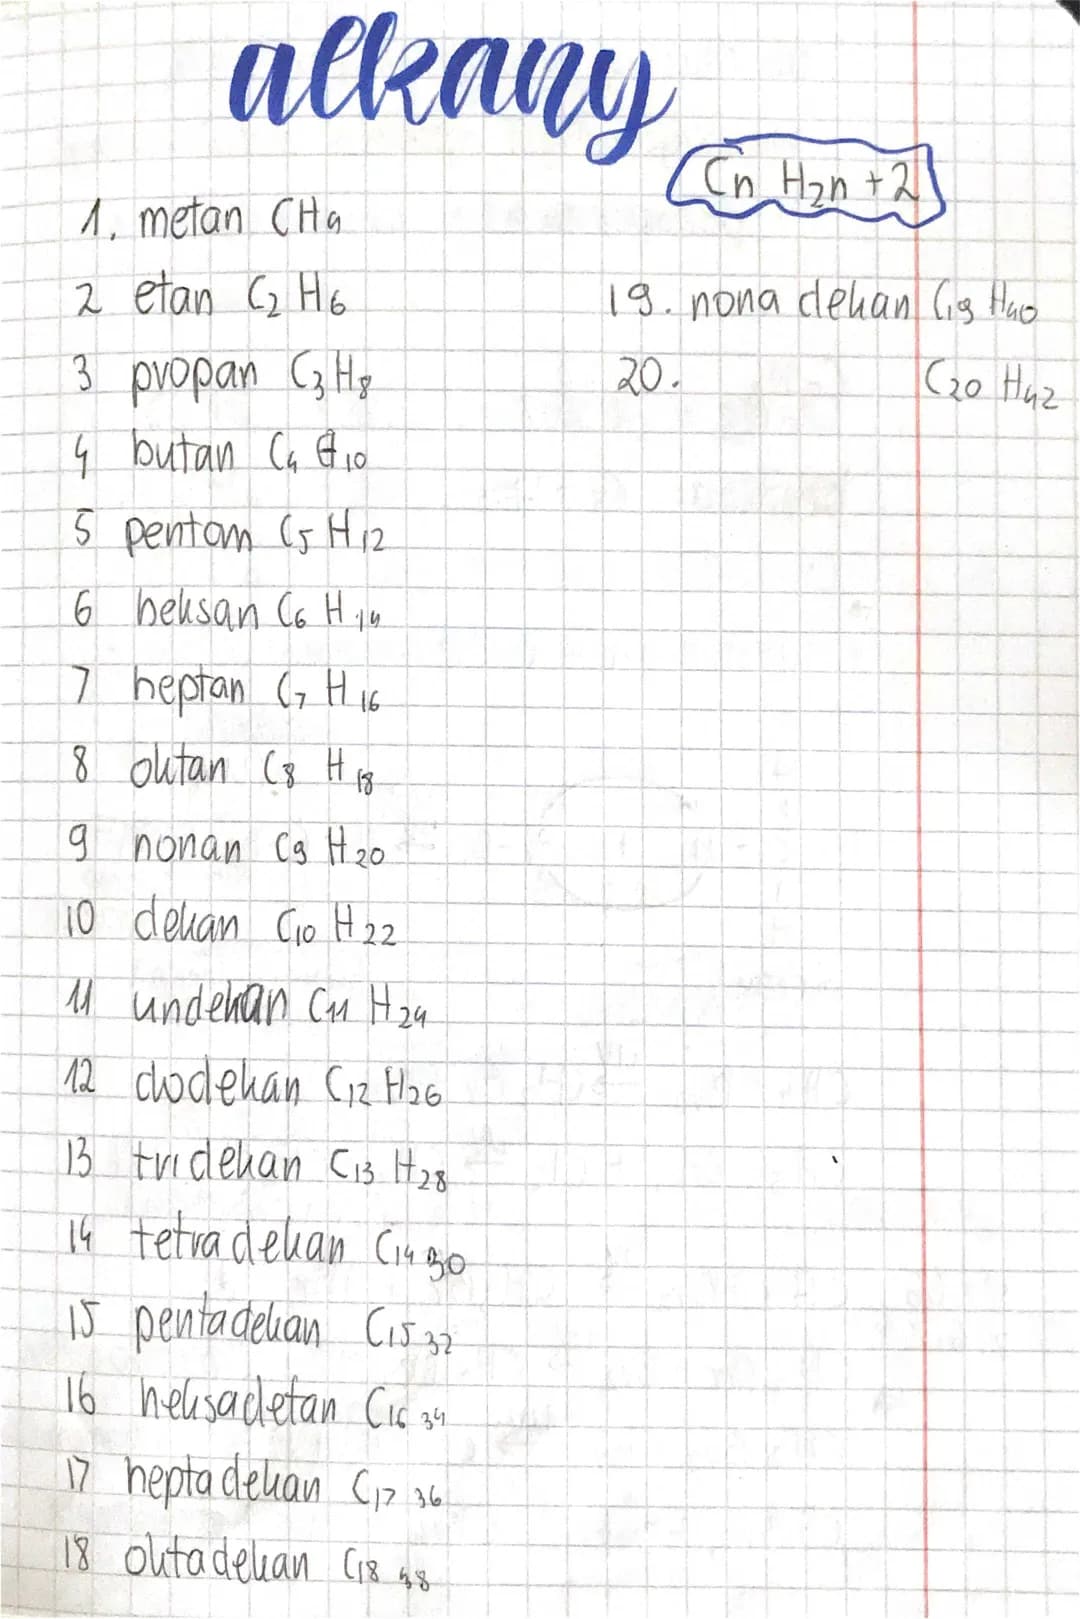 alkany
Cn H2n + 2
1. metan CH4
2 etan C2 H6
3 propan C3 H8
4 butan C4 H10
5 pentan C5 H12
6 heksan C6 H14
7 heptan C7 H16
8 oktan C8 H18
9 nonan C9 H20
10 dekan C10 H22
11 undekan C11 H24
12 dodekan C12 H26
13 tridekan C13 H28
14 tetradekan C14 30
15 pentadekan C15 32
16 heksadetan C16 34
17 heptadekan C17 36
18 oktadekan C18 38
19. nona dekan C19 H40
20. C20 H42